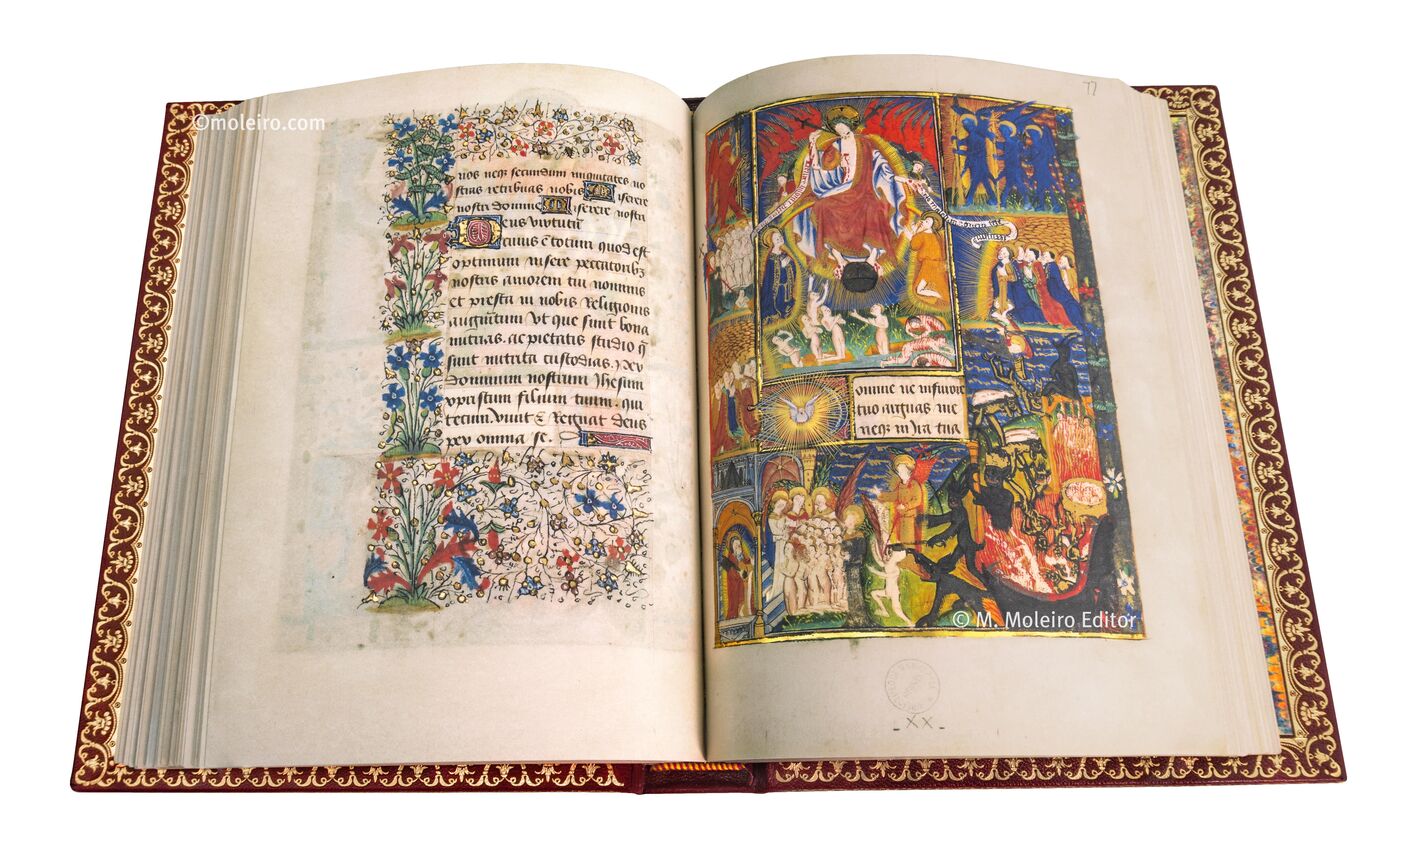 ©moleiro.com
nos neqz secundum iniquitates no
stras retribuas nobis Miserere
nostri domine Miserere nostri
Deus virtutum
cuius est totum quod est
optimum insere peccatoribz
nostris amorem tui nominis
et presta in nobis religionis
augmentum ut que sunt bona
nutrias. ac pietatis studio q
sunt nutrita custodias. per
dominum nostrum Jhesum
xpristum filium tuum. qui
tecum vivit & Regnat deus
per omnia se.
77
omine ne in furore
tuo arguas me
neqz in ira tua
© M. Moleiro Editor
-XX-